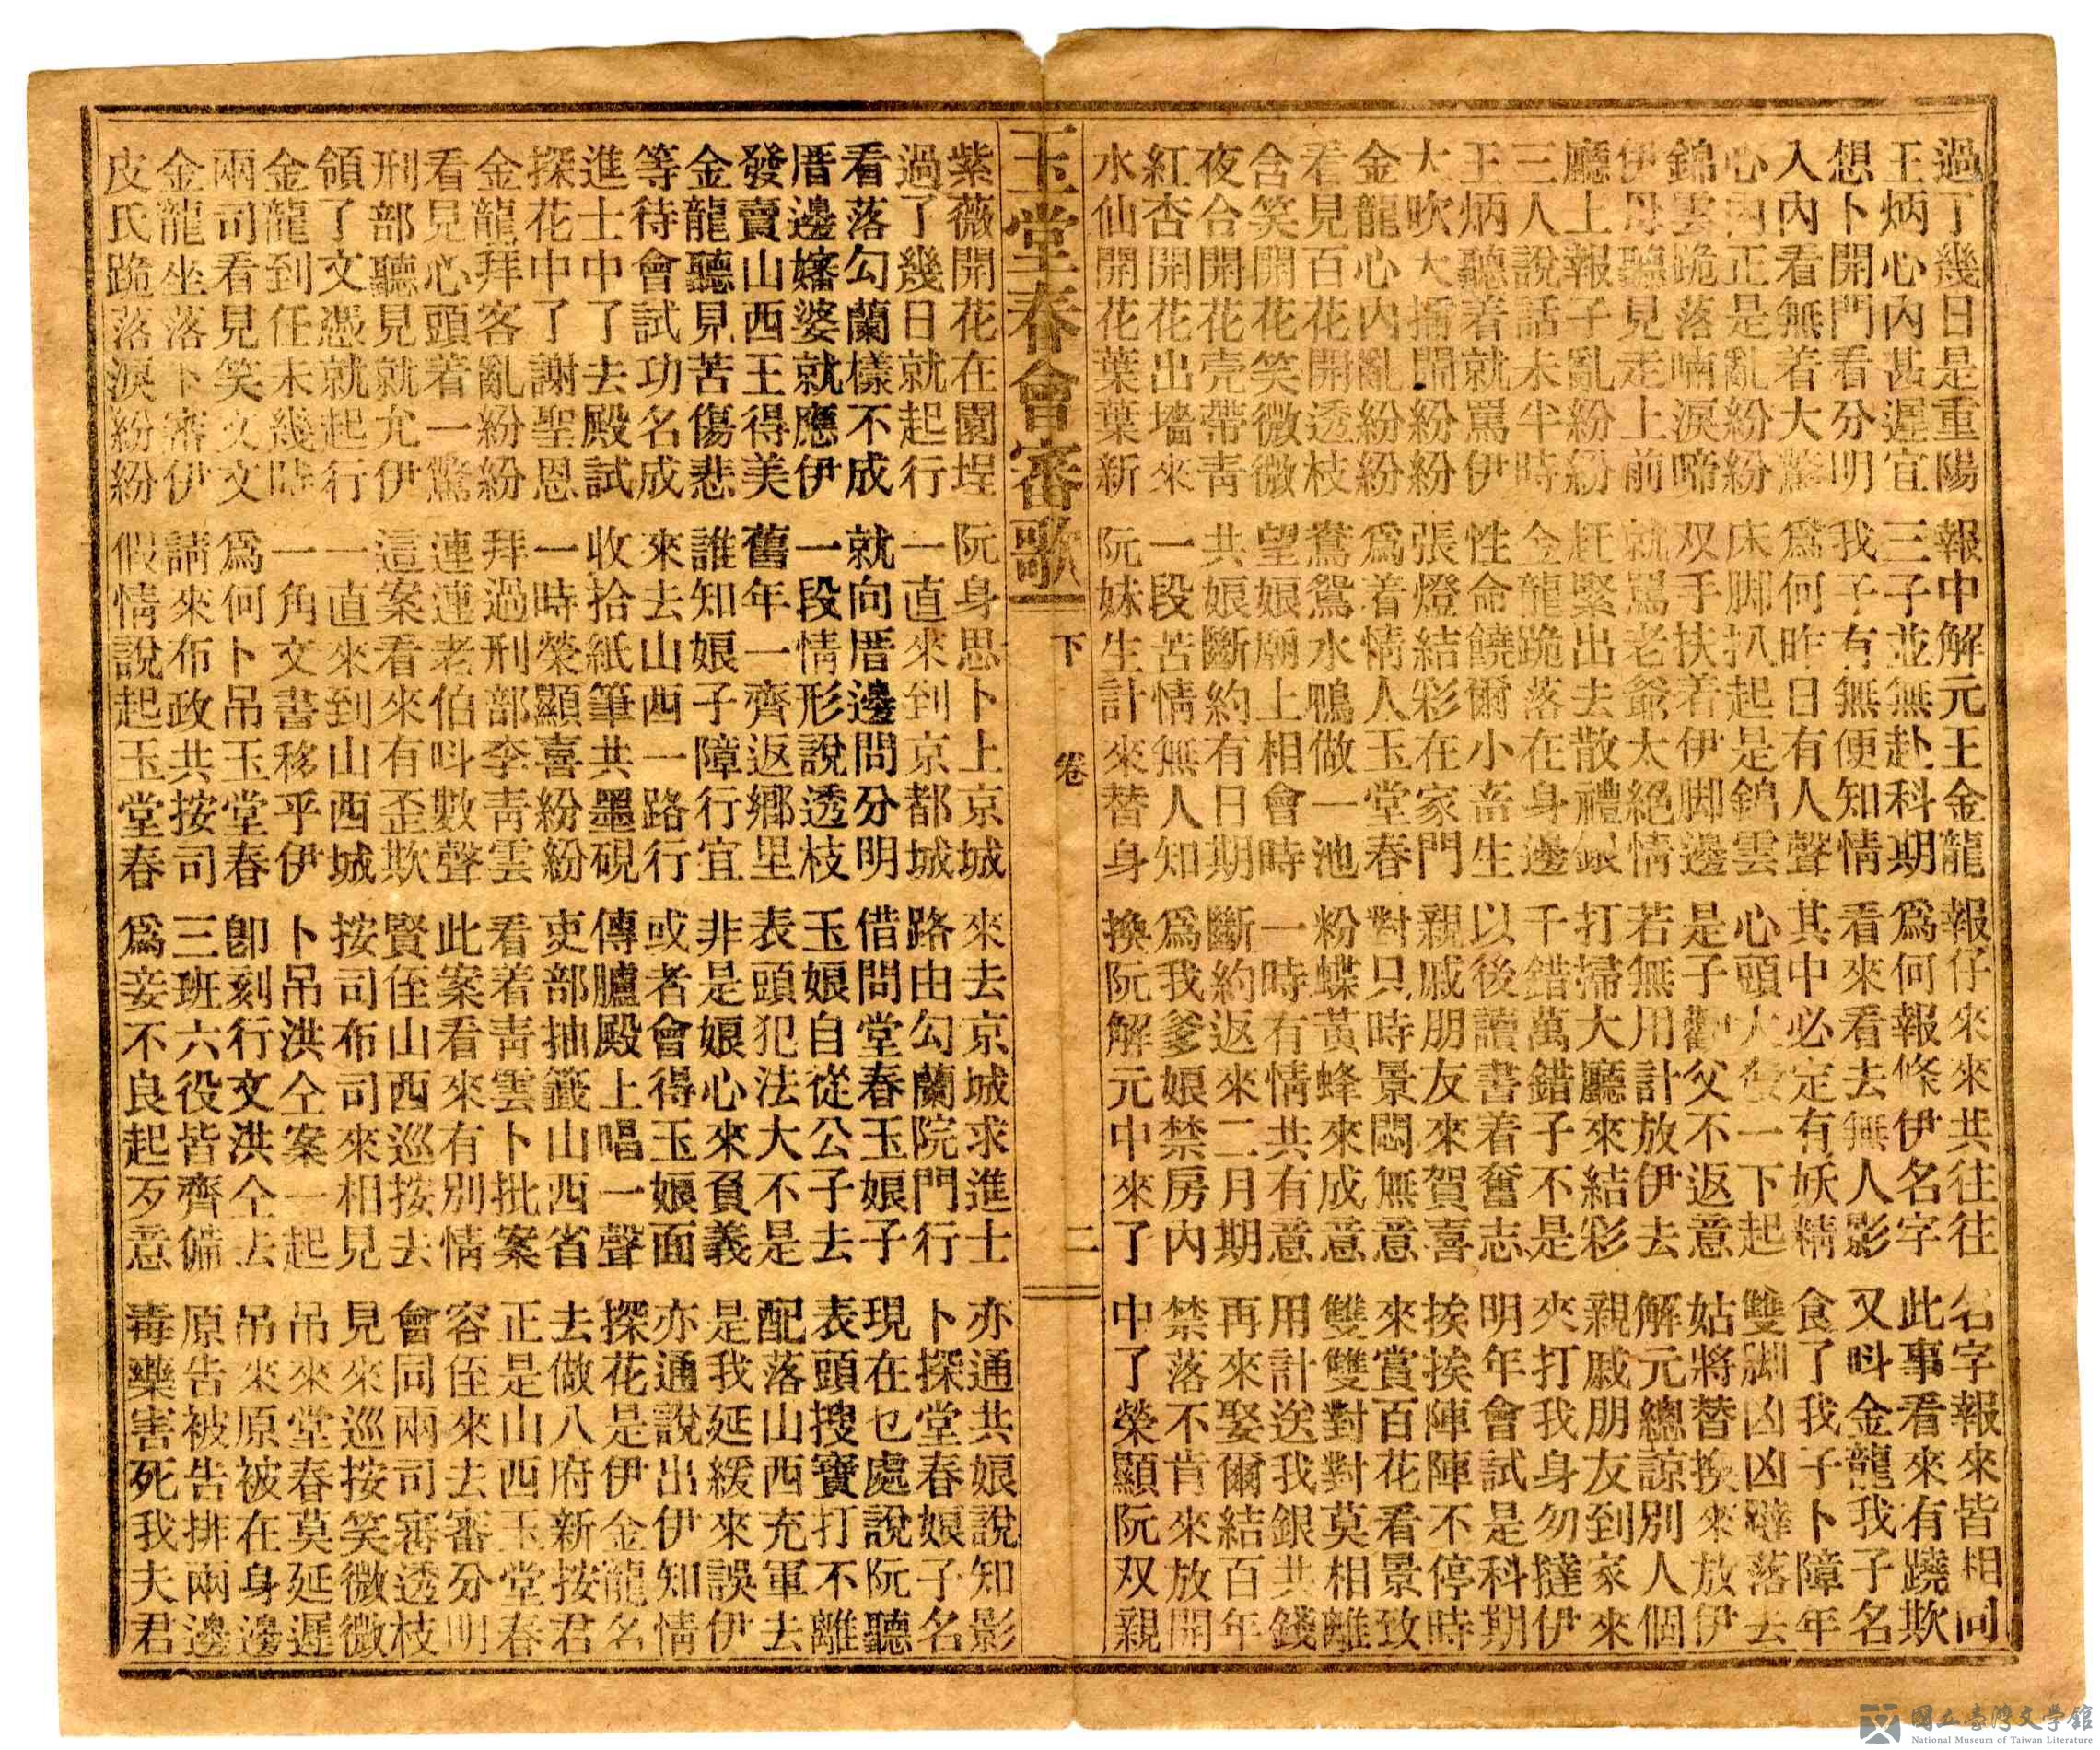 過了幾日是重陽 報中解元王金龍 報仔來來共往往 名字報來皆相同
王炳心內甚遲宜 三子並無赴科期 爲何報條伊名字 此事看來有蹺欺
想卜開門看分明 我子有無便知情 看來看去無人影 又呌金龍我子名
入內看無着大驚 爲何昨日有人聲 其中必定有妖精 食了我子卜障年
心內正是亂紛紛 床脚扒起是錦雲 心頭大發一下起 雙脚凶凶躃落去
錦雲跪落喃淚啼 双手扶若伊脚邊 是子勸父不返意 姑將替換來放伊
伊母聽見走上前 就罵老爺太絕情 若無用計放伊去 解元總諒別人個
廳上報子亂紛紛 赶緊出去散禮銀 打掃大廳來結彩 親戚朋友到家來
三人說話未半時 金龍跪落在身邊 千錯萬錯子不是 夾打我身勿撻伊
王炳聽着就罵伊 性命饒爾小畜生 以後讀書着奮志 明年會試是科期
大吹大擂鬧紛紛 張燈結彩在家門 親戚朋友來賀喜 挨挨陣陣不停時
金龍心內亂紛紛 爲着情人玉堂春 對只時景悶無意 來賞百花看景致
看見百花開透枝 鴦鴛水鴨做一池 粉蝶黃蜂來成意 雙雙對對莫相離
含笑開花笑微微 望娘廟上相會時 一時有情共有意 用計送我銀共錢
夜合開花壳帶青 共娘斷約有日期 斷約返來二月期 再來娶爾結百年
紅杏開花出墻來 一段苦情無人知 爲我爹娘禁房內 禁落不肯來放開
水仙開花葉葉新 阮妹生計來替身 換阮解元中來了 中了榮顯阮双親
玉堂春會審歌 下卷 二
紫薇開花在園埕 阮身思卜上京城 來去京城求進士 亦通共娘說知影
過了幾日就起行 一直來到京都城 路由勾蘭院門行 卜探堂春娘子名
看落勾蘭樣不成 就向厝邊問分明 借問堂春玉娘子 現在乜處說阮聽
厝邊嬸婆就應伊 一段情形說透枝 玉娘自從公子去 表頭搜寶打不離
發賣山西王得美 舊年一齊返鄉里 表頭犯法大不是 配落山西充軍去
金龍聽見苦傷悲 誰知娘子障行宜 非是娘心來負義 是我延緩來誤伊
等待會試功名成 來去山西一路行 或者會得玉娘面 亦通說出伊知情
進士中了去殿試 收拾紙筆共墨硯 傳臚殿上唱一聲 探花是伊金龍名
探花中了謝聖恩 一時榮顯喜紛紛 吏部抽籤山西省 去做八府新按君
金龍拜客亂紛紛 拜過刑部李靑雲 看着靑雲卜批案 正是山西玉堂春
看見心頭着一驚 連連老伯呌數聲 此案看來有別情 容侄來去審分明
刑部聽見就允伊 這案看來有歪欺 賢侄山西巡按去 會同兩司審透枝
領了文憑就起行 一直來到山西城 按司布司來相見 見來巡按笑微微
金龍到任未幾時 一角文書移乎伊 卜吊洪仝案一起 吊來堂春莫延遲
兩司看見笑文文 爲何卜吊玉堂春 卽刻行文洪仝去 吊來原被在身邊
金龍坐落卜審伊 請來布政共按司 三班六役皆齊備 原告被告排兩邊
皮氏跪落淚紛紛 假情說起玉堂春 爲妾不良起歹意 毒藥害死我夫君
國立臺灣文学館
National Museum of Taiwan Literature